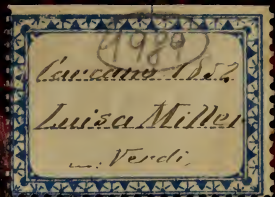 1980
Carcano 1852
Luisa Miller
m: Verdi